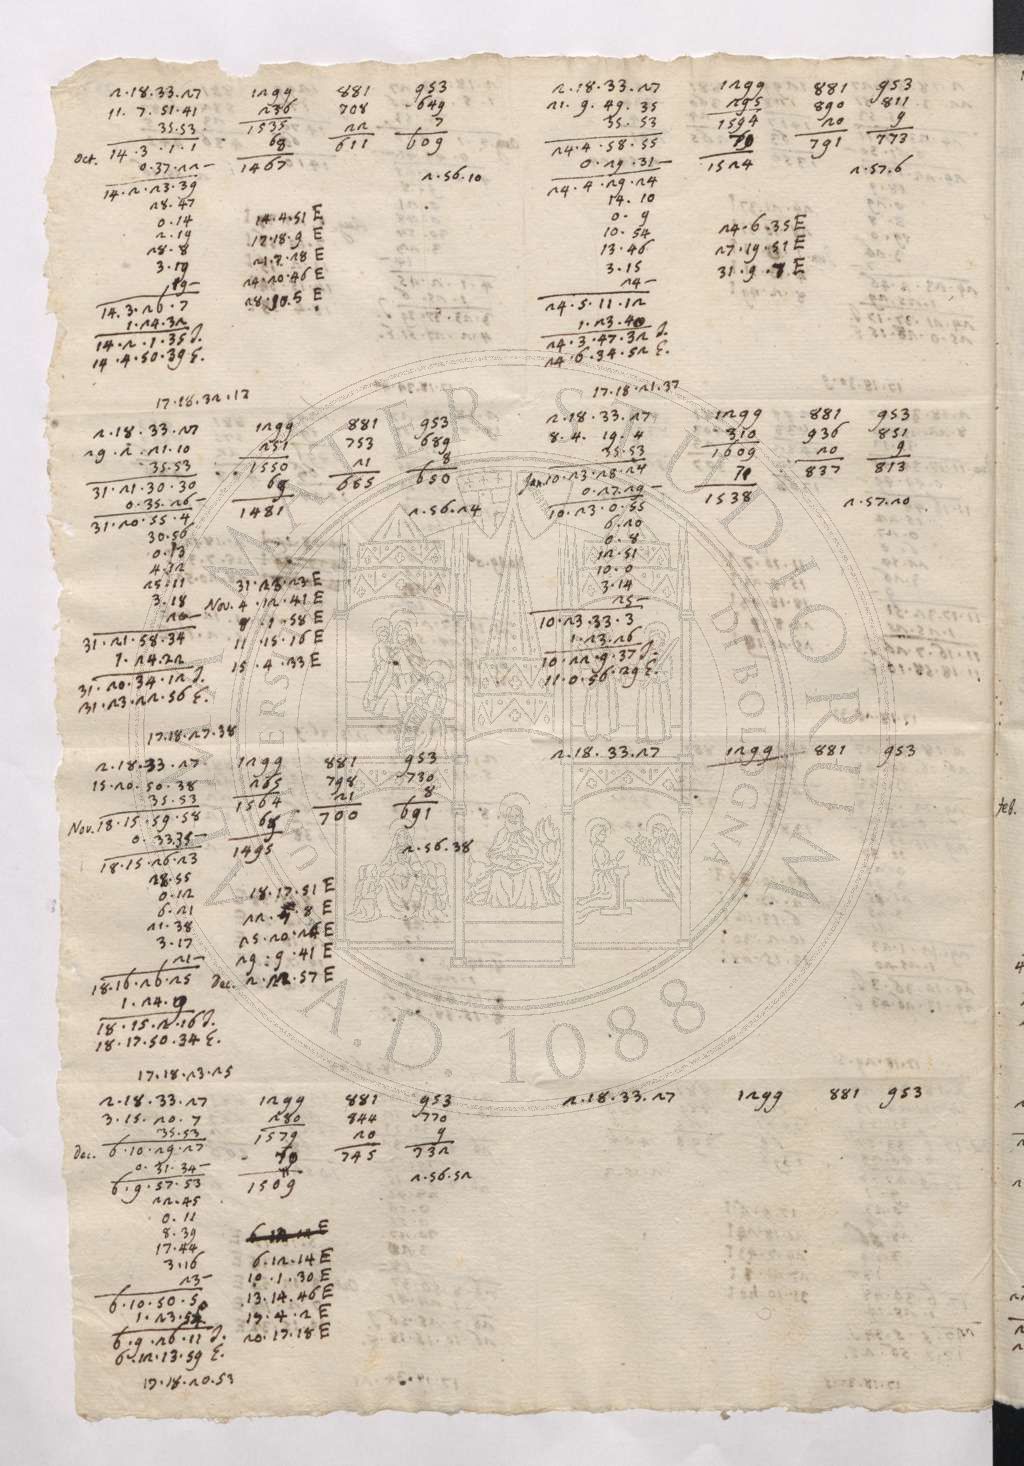 2.18.33.27 1299 881 953
11.7.51.41 236 708 649
35.53 1535 22 7
Oct. 14.3.1.1 68 611 609
0.37.22— 1467
14.2.23.39 2.56.10
28.47
0.14 14.4.51 E
2.19 17.18.9 E
28.8 21.7.28 E
3.19 24.20.46 E
19—
14.3.26.7
1.24.32
14.2.1.35 I.
14.4.50.39 E.
17.18.32.12
2.18.33.27 1299 881 953
21.9.49.35 295 890 811
35.53 1594 20 9
24.4.58.55 70 791 773
0.29.31— 1524
24.4.29.24 2.57.6
14.10
0.9
10.54 24.6.35 E
13.46 27.19.51 E
3.15 31.9.7 E
24—
24.5.11.12
1.23.40
24.3.47.32 I.
24.6.34.52 E.
17.18.21.37
2.18.33.27 1299 881 953
29.2.21.10 251 753 689
35.53 1550 21 8
31.21.30.30 69 655 650
0.35.26— 1481
31.20.55.4 2.56.24
30.56
0.13
4.12
25.11 31.23.23 E
3.18 Nov. 4.12.41 E
20— 8.1.58 E
31.21.58.34 11.15.16 E
1.24.22 15.4.33 E
31.20.34.12 I.
31.23.22.56 E.
17.18.27.38
2.18.33.27 1299 881 953
8.4.19.4 310 936 851
35.53 1609 20 9
Jan. 10.23.28.24 71 837 813
0.27.29— 1538
10.23.0.55 2.57.20
6.20
0.8
12.51
10.0
3.14
25—
10.23.33.3
1.23.26
10.22.9.37 I.
11.0.56.29 E.
2.18.33.27 1299 881 953
15.20.50.38 265 798 730
35.53 1564 21 8
Nov. 18.15.59.58 69 700 691
0.33.35— 1495
18.15.26.23 2.56.38
28.55
0.12 18.17.51 E
6.21
21.38 25.20.24 E
3.17 29.9.41 E
21— Dec. 2.22.57 E
18.16.26.25
1.24.9
18.15.2.16 I.
18.17.50.34 E.
17.18.23.25
2.18.33.27 1299 881 953
2.18.33.27 1299 881 953
3.15.20.7 280 844 770
35.53 1579 20 9
Dec. 6.10.29.27 70 745 732
0.31.34— 1509
6.9.57.53 2.56.52
22.45
0.11
8.39
17.44
3.16 6.12.14 E
23— 10.1.30 E
6.10.50.5 13.14.46 E
1.23.54 17.4.2 E
6.9.26.11 I. 20.17.18 E
6.12.13.59 E.
17.18.20.53
2.18.33.27 1299 881 953
feb.
ALMA MATER STUDIORUM
A.D 1088